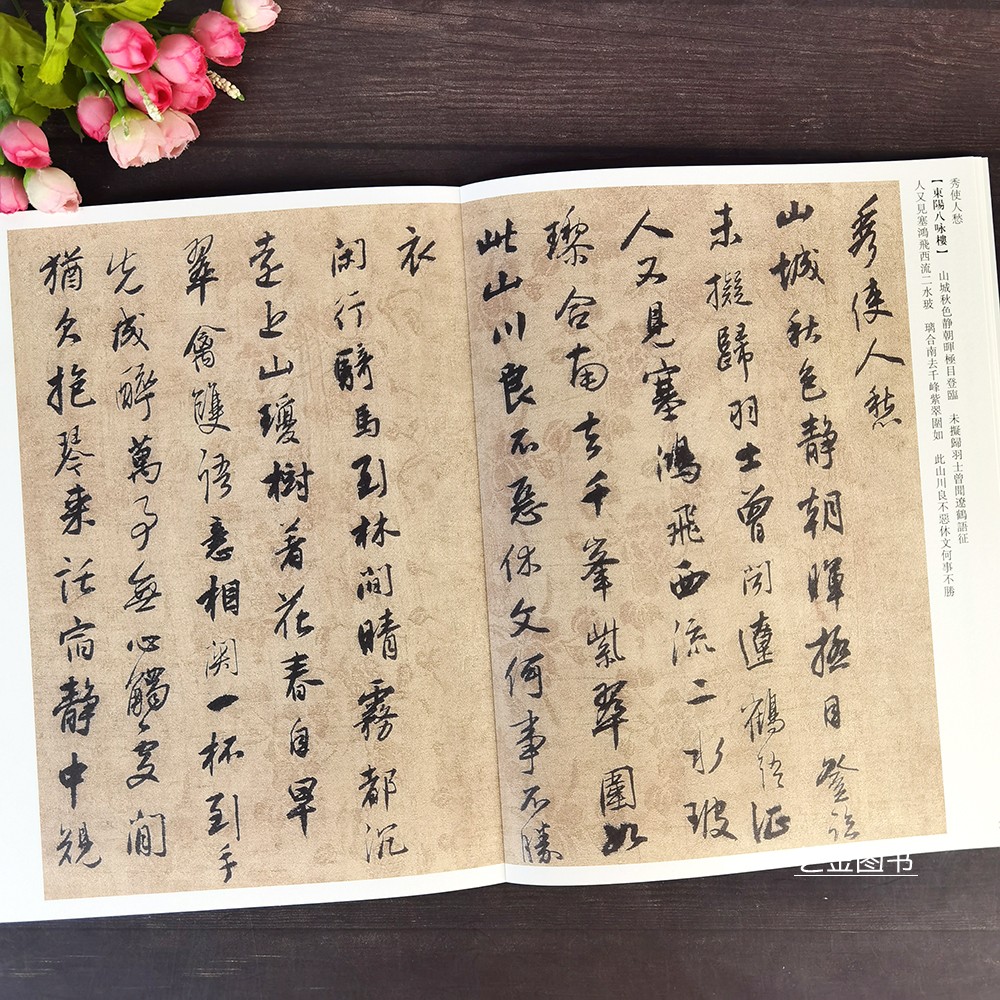 秀使人愁
【東陽八咏樓】　山城秋色静朝暉極目登臨　未擬歸羽士曾聞遼鶴語征
人又見塞鴻飛西流二水玻　璃合南去千峰紫翠圍如　此山川良不惡休文何事不勝
秀使人愁
山城秋色静朝暉極目登臨
未擬歸羽士曾聞遼鶴語征
人又見塞鴻飛西流二水玻
瓈合南去千峯紫翠圍如
此山川良不惡休文何事不勝
衣
閑行騎馬到林間晴霧都沉
遠近山瓊樹着花春自早
翠禽雙語意相關一杯到手
先成醉萬事無心觸處間
猶欠抱琴來話宿静中觀
艺金图书